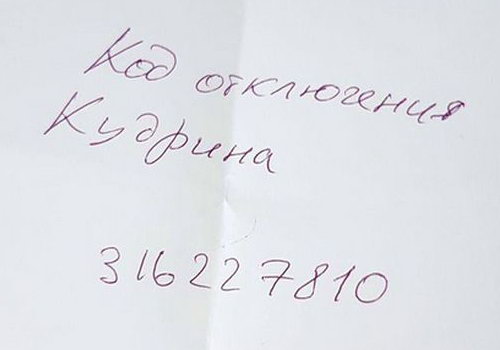 Код отключения
Кудрина
316227810